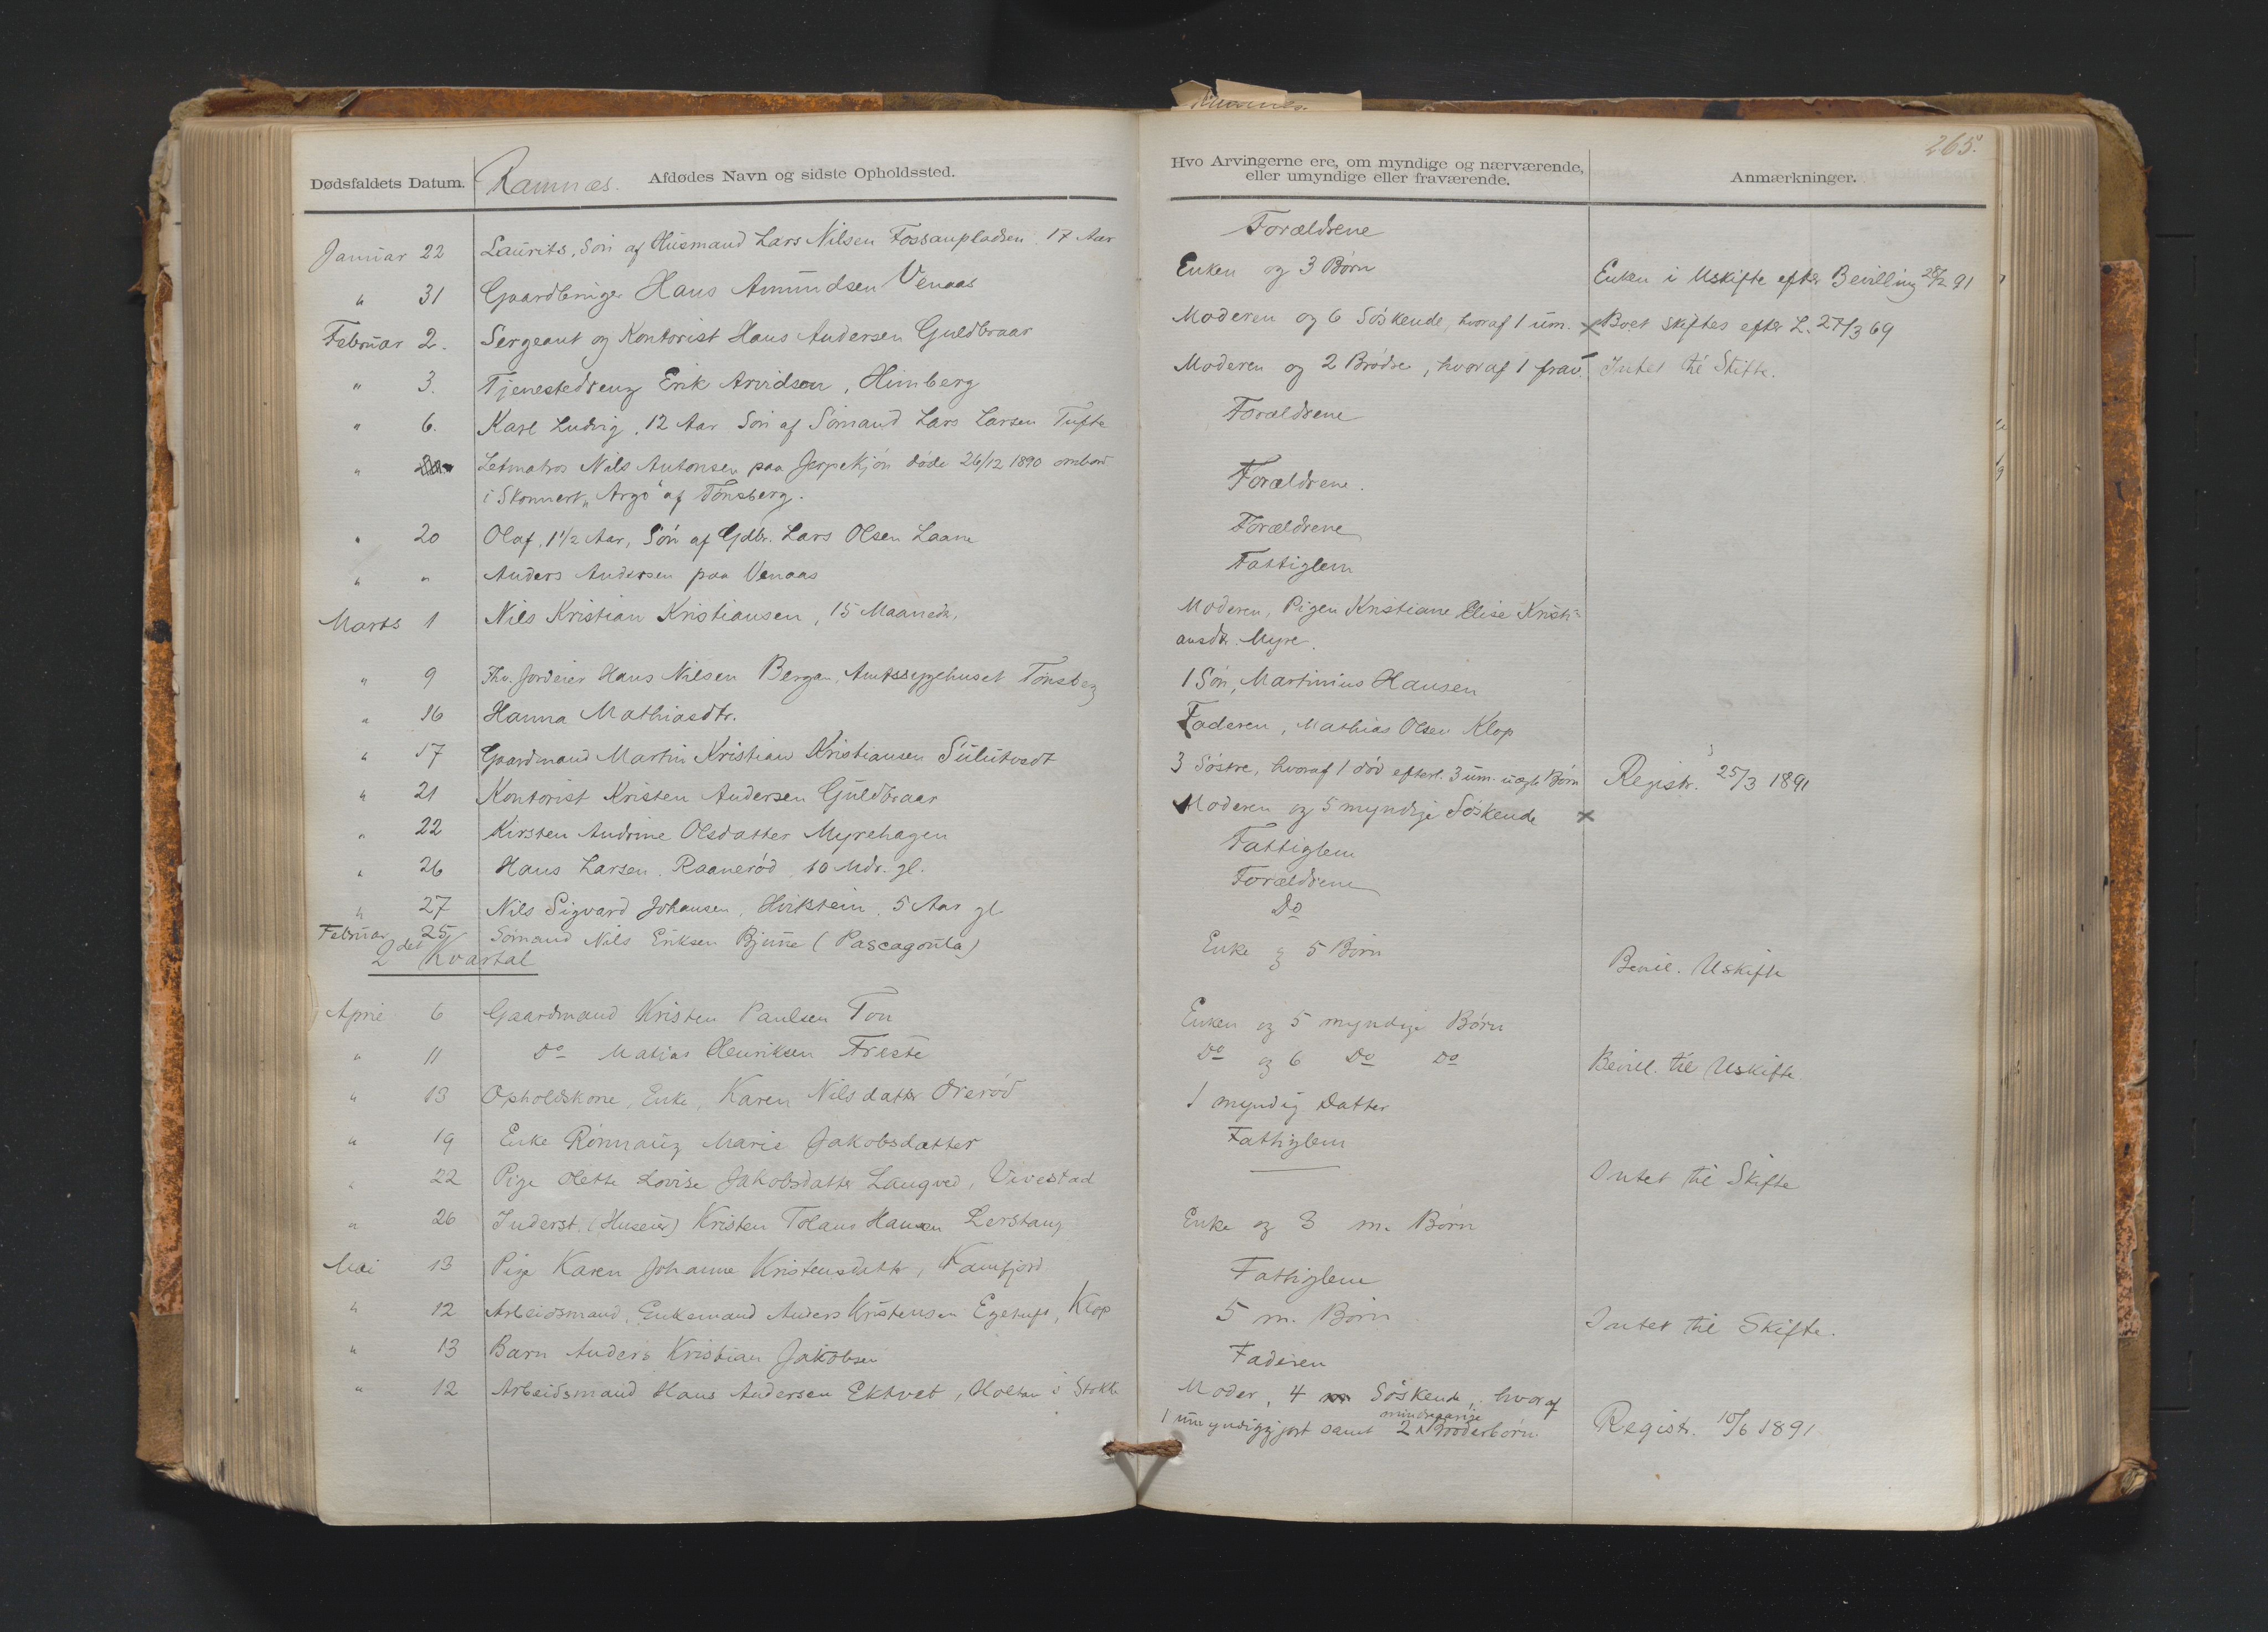 Ramnæs.
265.
Dødsfaldets Datum. Ramnæs. Afdødes Navn og sidste Opholdssted. Hvo Arvingerne ere, om myndige og nærværende, Anmærkninger.
eller umyndige eller fraværende.
Januar 22 Laurits, Søn af Husmand Lars Nilsen Fossanpladsen 17 Aar Forældrene
" 31 Gaardbruger Hans Amundsen Venaas Enken og 3 Børn Enken i Uskifte efter Bevilling 28/2 91
Februar 2. Sergeant og Kontorist Hans Andersen Guldbraar Moderen og 6 Søskende, hvoraf 1 um. x Boet skiftes efter L. 27/3 69
" 3. Tjenestedreng Erik Arvidsen, Himberg Moderen og 2 Brødre, hvoraf 1 frav. Intet til Skifte.
" 6. Karl Ludvig, 12 Aar Søn af Sømand Lars Larsen Tufte Forældrene
" Letmatros Nils Antonsen paa Jerpekjøn døde 26/12 1890 ombord
i Skonnert "Argo" af Tønsberg. Forældrene.
" 20 Olaf, 1 1/2 Aar, Søn af Gdbr. Lars Olsen Laane Forældrene
" " Anders Andersen paa Venaas Fattiglem
Marts 1 Nils Kristian Kristiansen, 15 Maaneder, Moderen, Pigen Kristiane Elise Kristi-
ansdtr. Myre.
" 9 Fhv. Jordeier Hans Nilsen Bergan, Amtssygehuset Tønsberg 1 Søn, Martinius Hansen
" 16 Hanna Mathiasdtr. Faderen, Mathias Olsen Klop
" 17 Gaardmand Martin Kristian Kristiansen Sulutvedt 3 Søstre, hvoraf 1 død efterl. 3 um. uægte Børn Registr. 25/3 1891
" 21 Kontorist Kristen Andersen Guldbraar Moderen og 5 myndige Søskende x
" 22 Kirsten Andrine Olsdatter Myrehagen Fattiglem
" 26 Hans Larsen Raanerød, 10 Mdr. gl. Forældrene
" 27 Nils Sigvard Johansen, Hvitstein, 5 Aar gl. Do
Februar 25 Sømand Nils Eriksen Bjune (Pascagoula) Enke og 5 Børn Bevil. Uskifte
2det Kvartal
April 6 Gaardmand Kristen Paulsen Ton Enken og 5 myndige Børn
" 11 Do Matias Henriksen Freste Do og 6 Do Do Bevill. til Uskifte
" 13 Opholdskone, Enke, Karen Nilsdatter Orerød 1 myndig Datter
" 19 Enke Rønnaug Marie Jakobsdatter Fattiglem
" 22 Pige Olette Lovise Jakobsdatter Langved, Vivestad — Intet til Skifte
" 26 Inderst (Huseier) Kristen Tolans Hansen Lerskaug Enke og 3 m. Børn
Mai 13 Pige Karen Johanne Kristensdatter, Kamfjord Fattiglem
" 12 Arbeidsmand, Enkemand Anders Kristensen Egetuft, Klop 5 m. Børn Intet til Skifte.
" 13 Barn Anders Kristian Jakobsen Faderen
" 12 Arbeidsmand Hans Andersen Ektvet, Holtan i Stokke Moder, 4 Søskende, hvoraf
1 umyndiggjort samt 2 mindreaarige Broderbørn Registr. 10/6 1891